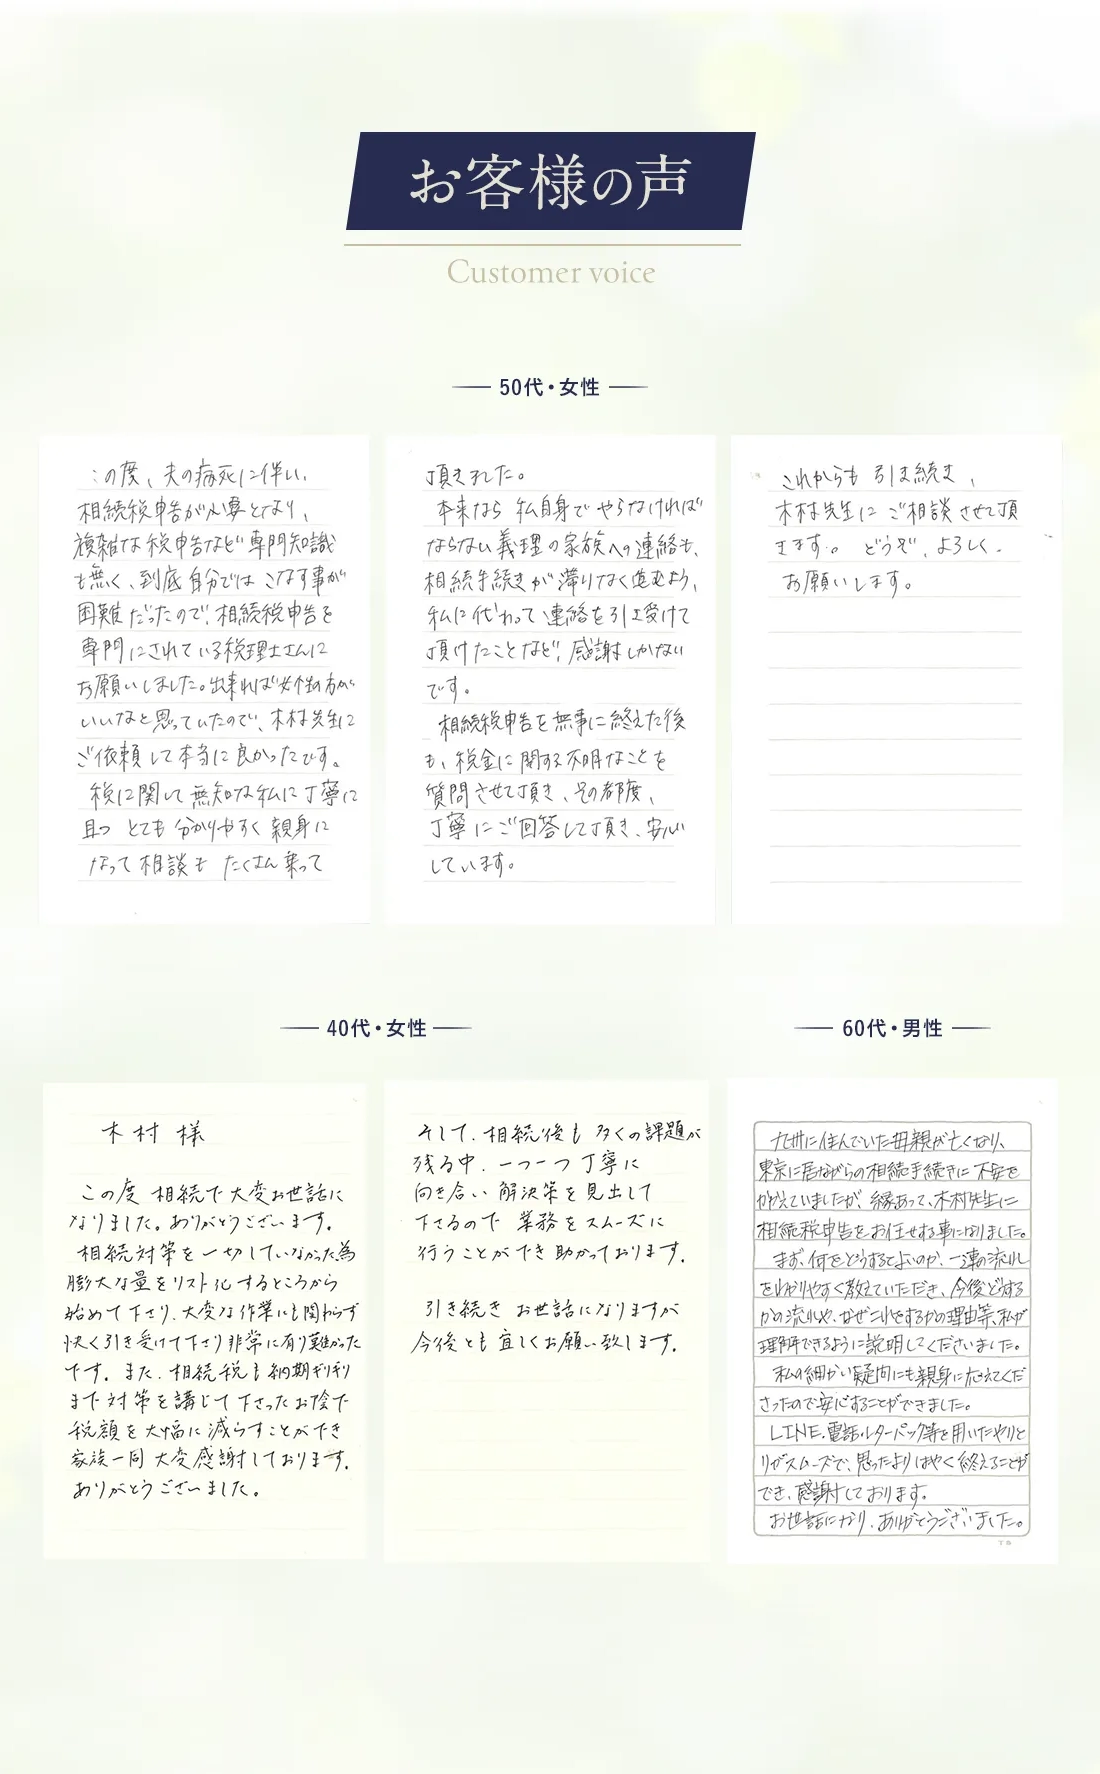 お客様の声
Customer voice
50代・女性
この度、夫の病死に伴い、
相続税申告が必要となり、
複雑な税申告など専門知識
も無く、到底自分ではこなす事が
困難だったので、相続税申告を
専門にされている税理士さんに
お願いしました。出来れば女性の方が
いいなと思っていたので、木村先生に
ご依頼して本当に良かったです。
税に関して無知な私に丁寧に
且つ とても分かりやすく親身に
なって相談も たくさん乗って
頂きました。
本来なら 私自身でやらなければ
ならない義理の家族への連絡も、
相続手続きが滞りなく進むよう、
私に代わって連絡を引き受けて
頂けたことなど、感謝しかない
です。
相続税申告を無事に終えた後
も、税金に関する不明なことを
質問させて頂き、その都度、
丁寧にご回答して頂き、安心
しています。
これからも 引き続き、
木村先生に ご相談させて頂
きます。 どうぞ、よろしく
お願いします。
40代・女性
木村 様
この度 相続で大変お世話に
なりました。ありがとうございます。
相続対策を一切していなかった為
膨大な量をリスト化するところから
始めて下さり、大変な作業にも関わらず
快く引き受けて下さり非常に有り難かった
です。また、相続税も納期ギリギリ
まで対策を講じて下さったお陰で
税額を大幅に減らすことができ
家族一同大変感謝しております。
ありがとうございました。
そして、相続後も多くの課題が
残る中、一つ一つ丁寧に
向き合い 解決策を見出して
下さるので 業務をスムーズに
行うことができ助かっております。
引き続き お世話になりますが
今後とも宜しくお願い致します。
60代・男性
九州に住んでいた母親が亡くなり、
東京に居ながらの相続手続きに不安を
かかえていましたが、縁あって、木村先生に
相続税申告をお任せする事になりました。
まず、何をどうするてよいのか、一連の流れ
をわかりやすく教えていただき、今後どうする
かの流れや、なぜこれをするかの理由等、私が
理解できるように説明してくださいました。
私の細かい疑問にも親身に応えてくだ
さったので安心することができました。
LINE・電話・レターパック等を用いたやりと
りがスムーズで、思ったよりはやく終えることが
でき、感謝しております。
お世話になり、ありがとうございました。